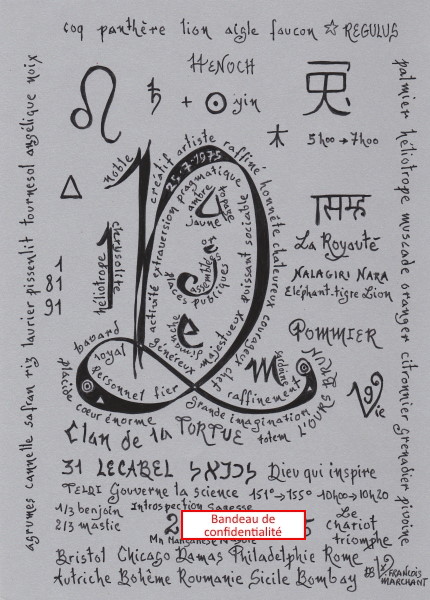 coq panthère lion aigle faucon ☆ REGULUS
HENOCH
♌ ♄ + ☉ yin
木 5h00 → 7h00
noix angélique tournesol pissenlit laurier riz safran cannelle agrumes
palmier héliotrope muscade oranger citronnier grenadier pivoine
△
1
81
91
noble
créatif artiste raffiné honnête chaleureux courageux chef raffinement
25-7-1975
activité extraversion pragmatique
puissant sociable
généreux majestueux
ambre
topaze
jaune
places assemblées
publiques
dimanche
héliotrope
chrysolite
सिंह
La Royauté
NALAGIRI NARA
Eléphant-tigre Lion
POMMIER
Vie
bavard
royal
personnel fier
placide cœur énorme
grande imagination
totem L'OURS BRUN
Clan de la TORTUE
31 LECABEL לכבאל Dieu qui inspire
TELDI Gouverne la science 151°→155° 10h00→10h20
1/3 benjoin Introspection Sagesse
2/3 mastic
Le
Chariot
triomphe
Bandeau de
confidentialité
Bristol Chicago Damas Philadelphie Rome
Autriche Bohême Roumanie Sicile Bombay
FRANCOIS
MARCHANT